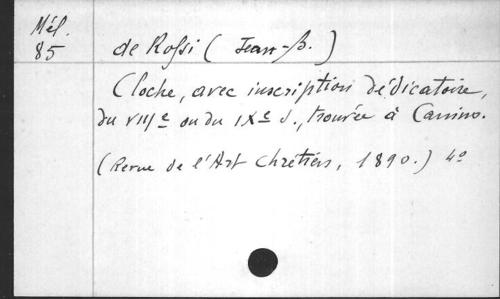 Mél.
85
de Rossi (Jean-B.)
Cloche, avec inscription dédicatoire,
du VIIIe ou du IXe s., trouvée à Canino.
(Revue de l'Art Chrétien, 1890.) 4o